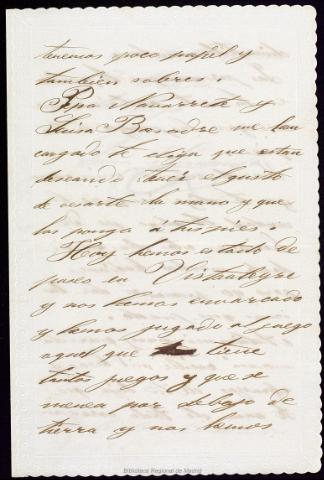 tenemos poco papel y
tambien sobres.
Pepa Navarrete y
Luisa Basadre me han
cargado te diga que estan
deseando tener el gusto
de besarte la mano y que
las ponga á tus pies.
Hoy hemos estado de
paseo en Vistalegre
y nos hemos embarcado
y hemos jugado al juego
aquel que tiene
tantos juegos y que se
menea por debajo de
tierra y nos hemos
Biblioteca Regional de Madrid